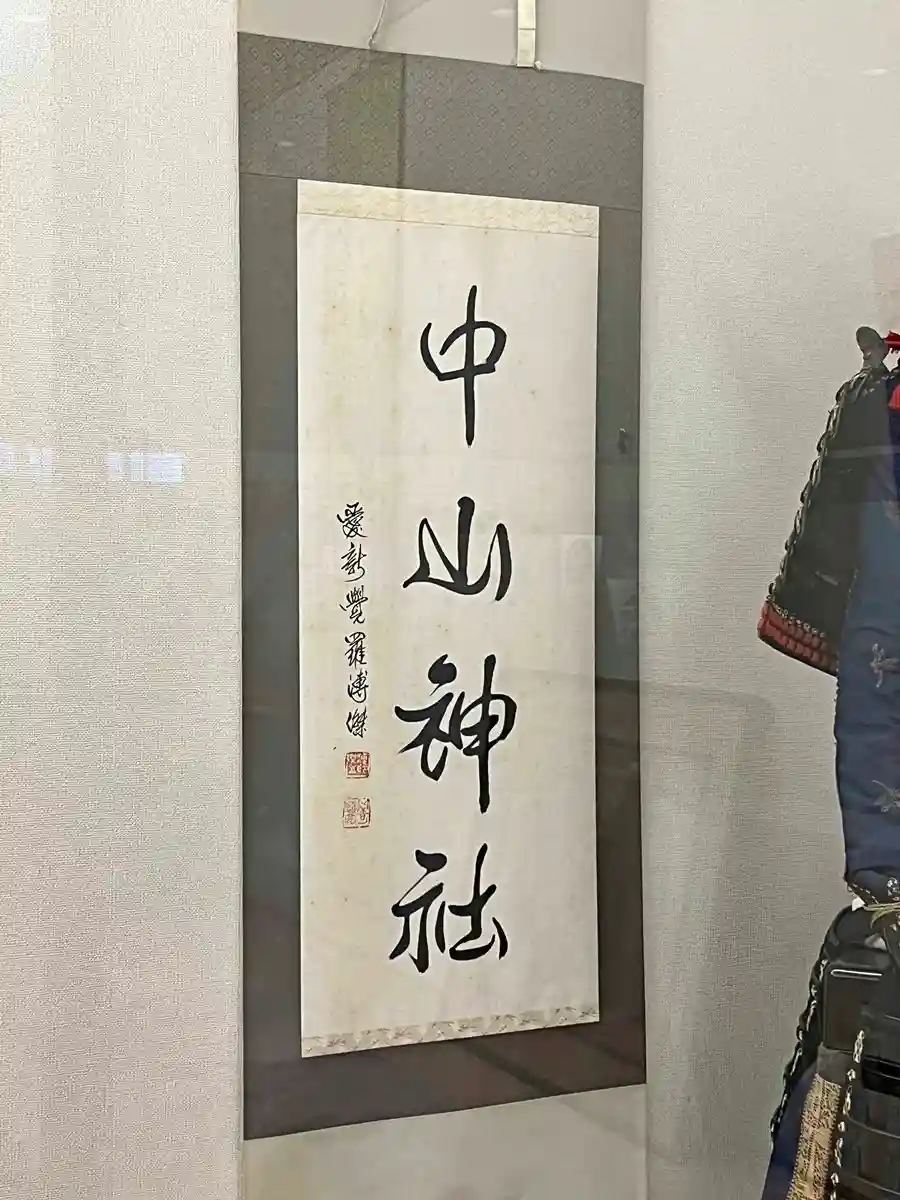 中山神社
愛新覺羅溥傑